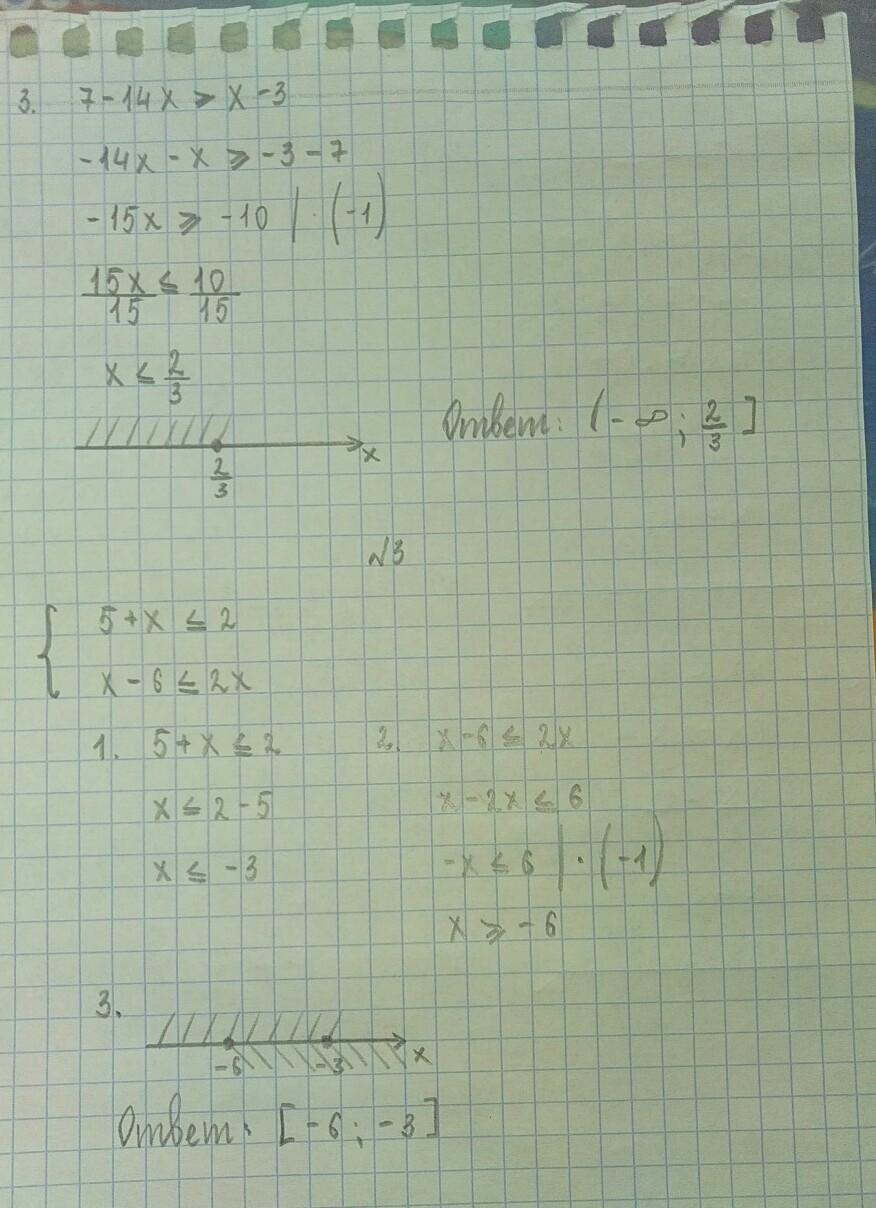 3. 7-14x ⩾ x-3
-14x - x ⩾ -3-7
-15x ⩾ -10 | · (-1)
15x/15 ≤ 10/15
x ≤ 2/3
Ответ: (-∞; 2/3]
2/3 x
№3
{ 5+x ≤ 2
x-6 ≤ 2x
1. 5+x ≤ 2
x ≤ 2-5
x ≤ -3
2. x-6 ≤ 2x
x-2x ≤ 6
-x ≤ 6 | · (-1)
x ⩾ -6
3.
-6 -3 x
Ответ: [-6; -3]